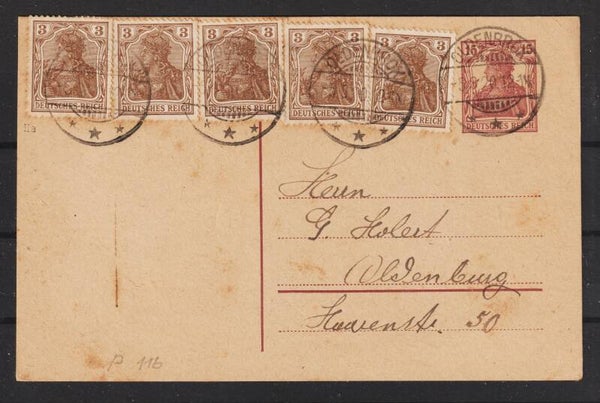 3 3 3 3 3 15 15
DEUTSCHES REICH DEUTSCHES REICH DEUTSCHES REICH DEUTSCHES REICH DEUTSCHES REICH DEUTSCHES REICH
Herrn
G. Holert
Oldenburg
50
P 116